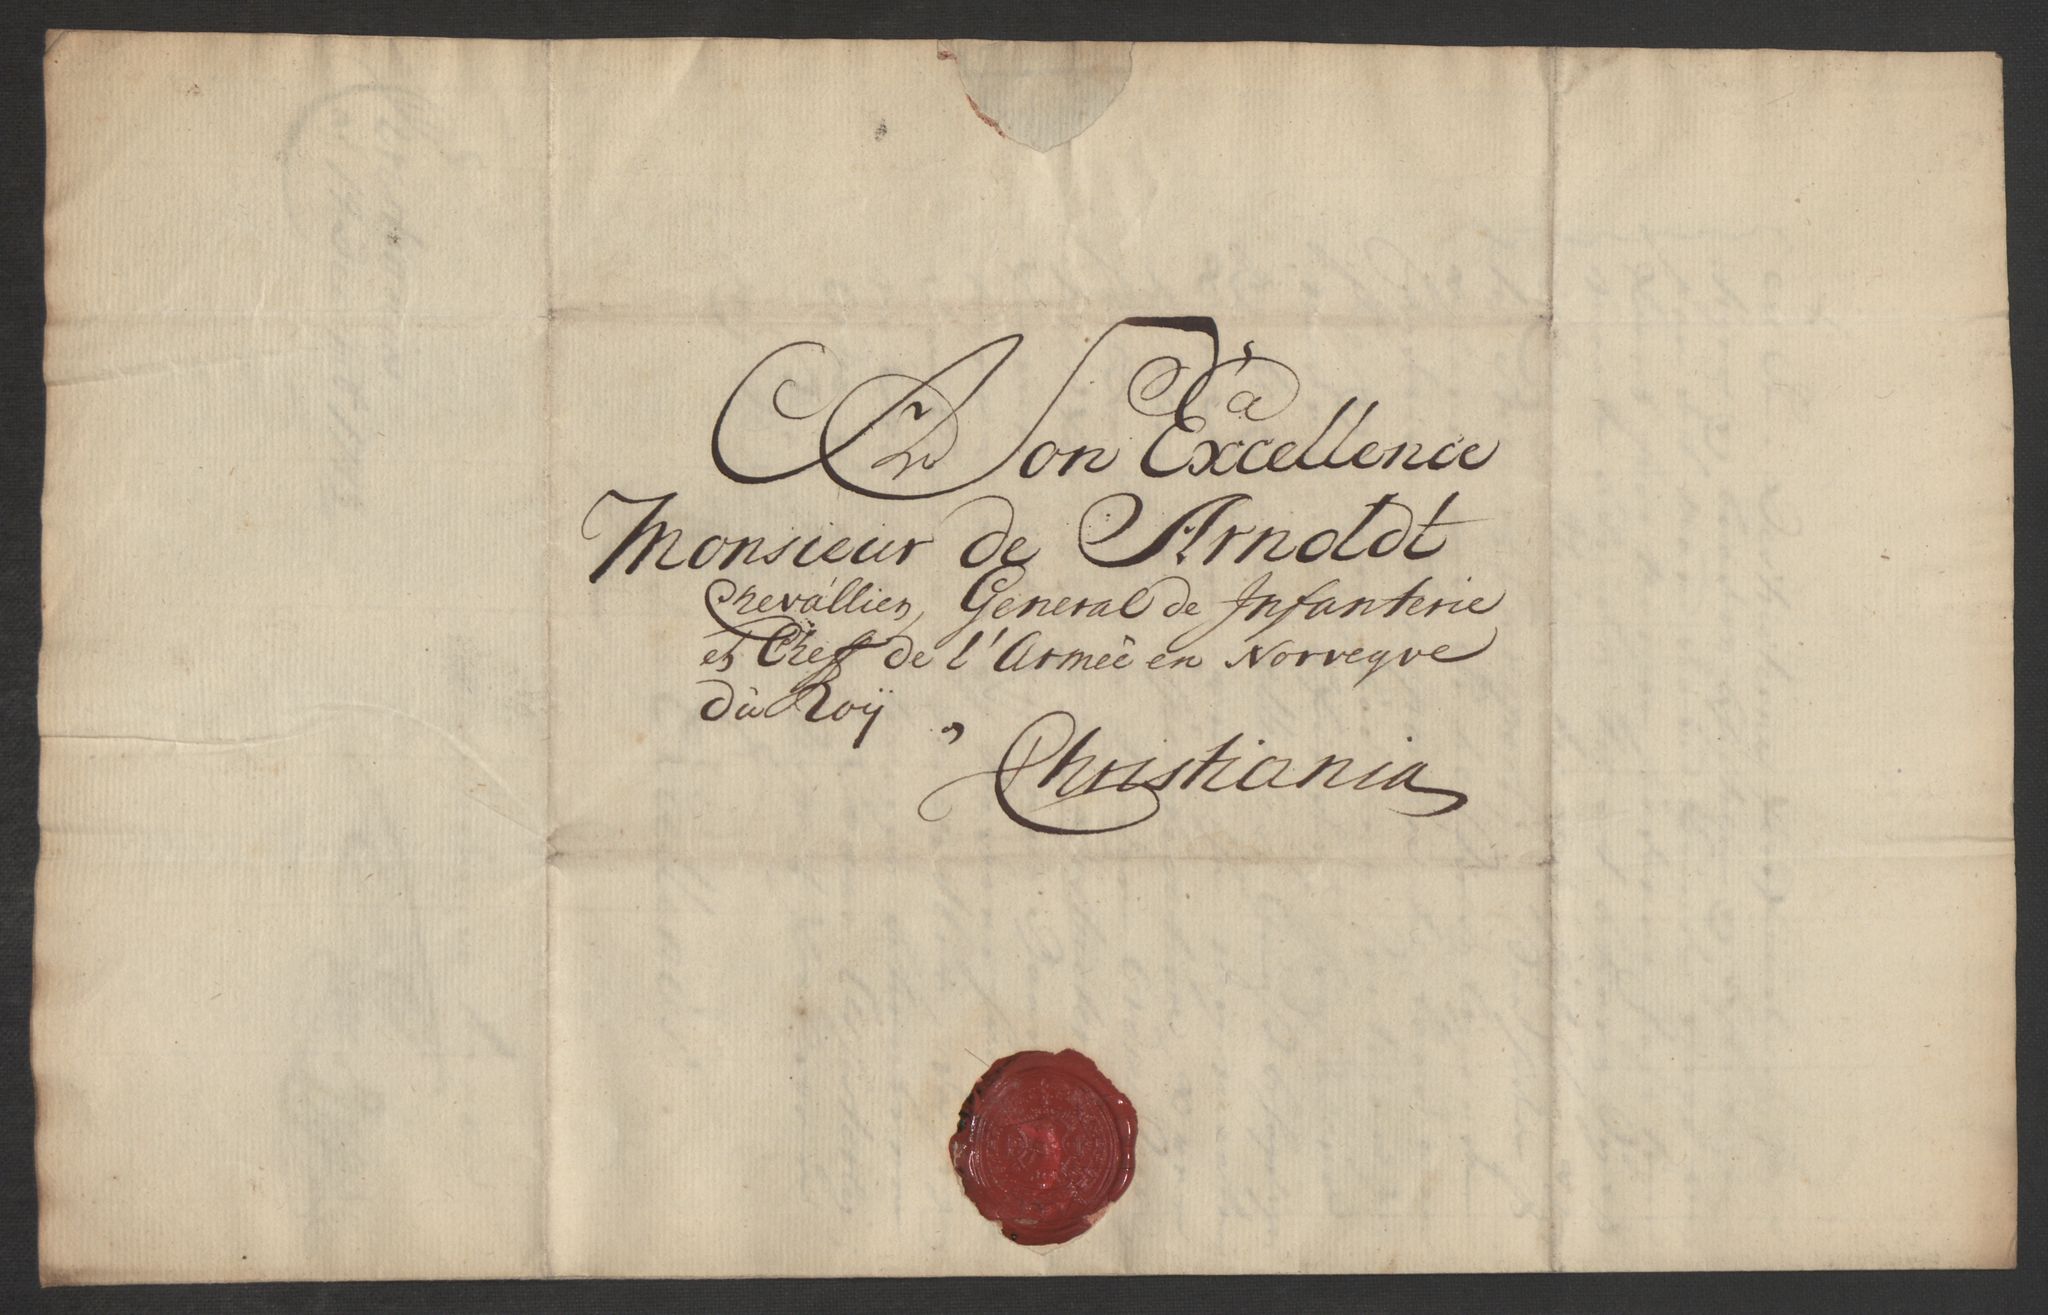 à
A Son Excellence
Monsieur de Arnoldt
Chevallier, General de Infanterie
et Cheff de l'Armée en Norvegve
dù Roÿ
Christiania